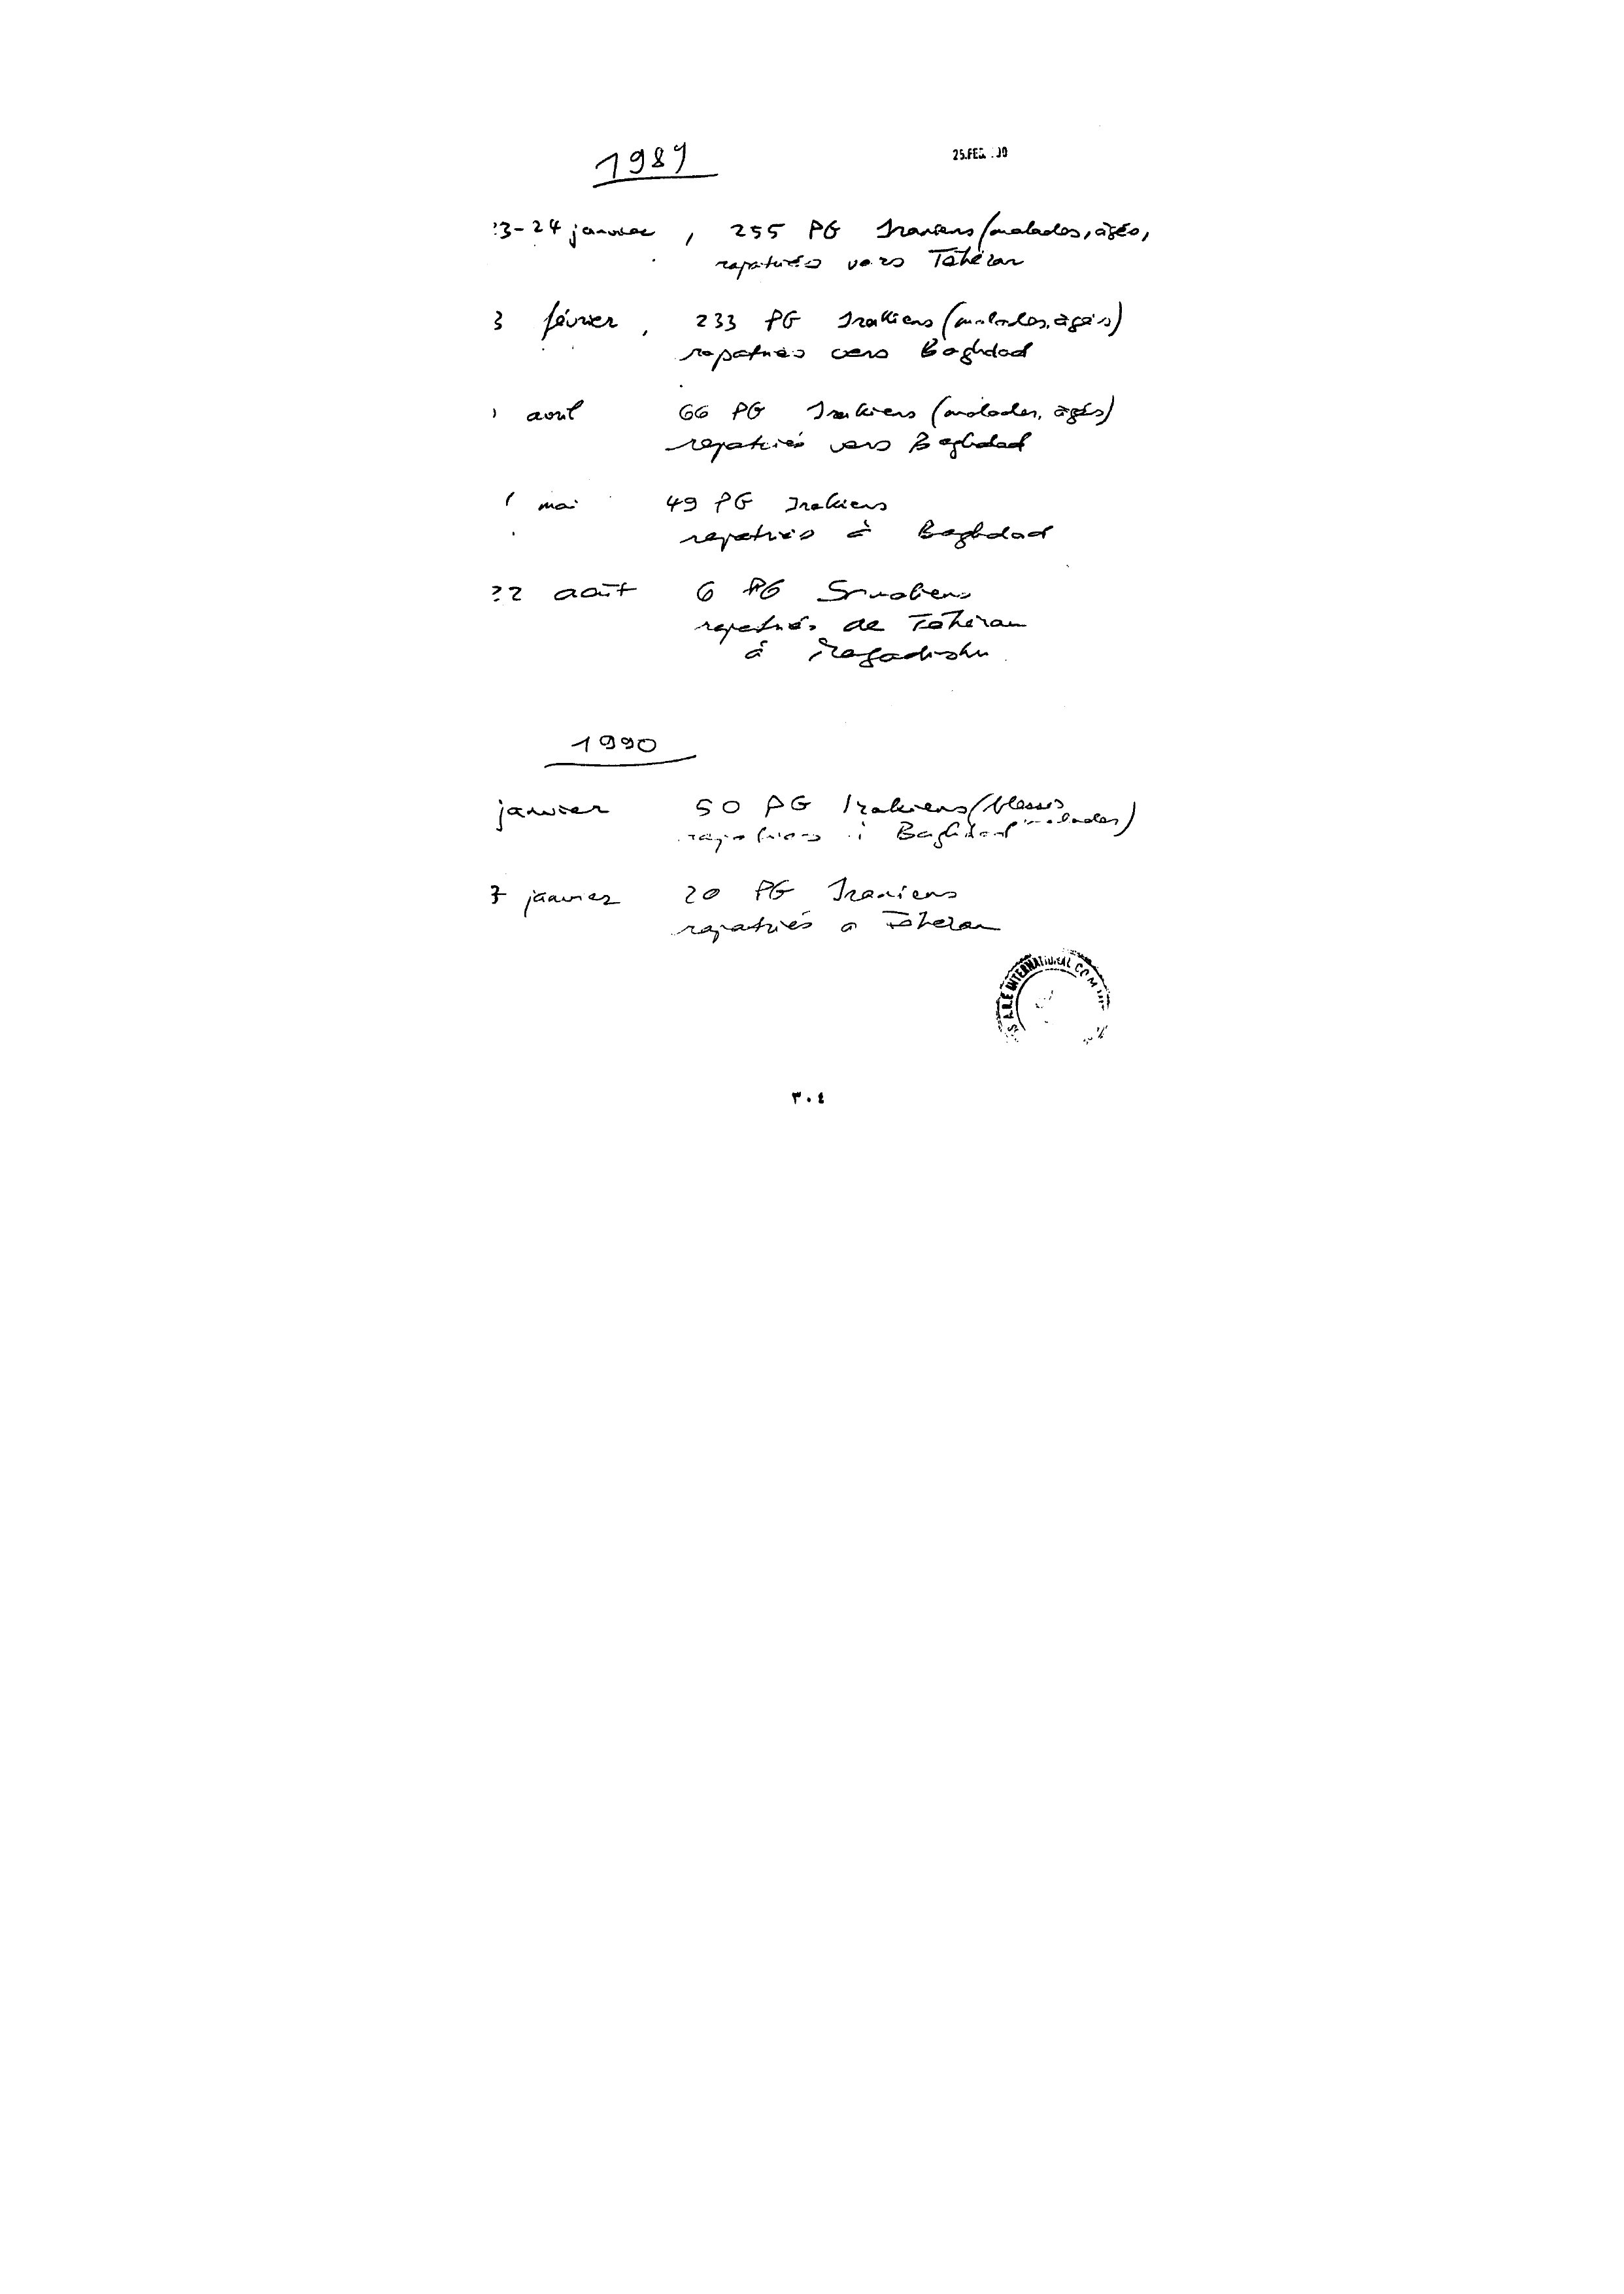 1989
25.FEB
3-24 janvier , 255 PG Iraniens (malades, âgés,
rapatriés vers Téhéran
3 février , 233 PG Irakiens (malades, âgés)
rapatriés vers Baghdad
avril 66 PG Irakiens (malades, âgés)
rapatriés vers Baghdad
mai 49 PG Irakiens
rapatriés à Baghdad
22 août 6 PG Somaliens
rapatriés de Téhéran
à Mogadishu
1990
janvier 50 PG Irakiens (blessés
malades)
rapatriés à Baghdad
janvier 20 PG Iraniens
rapatriés à Téhéran
INTERNATIONAL COM
٣٠٤